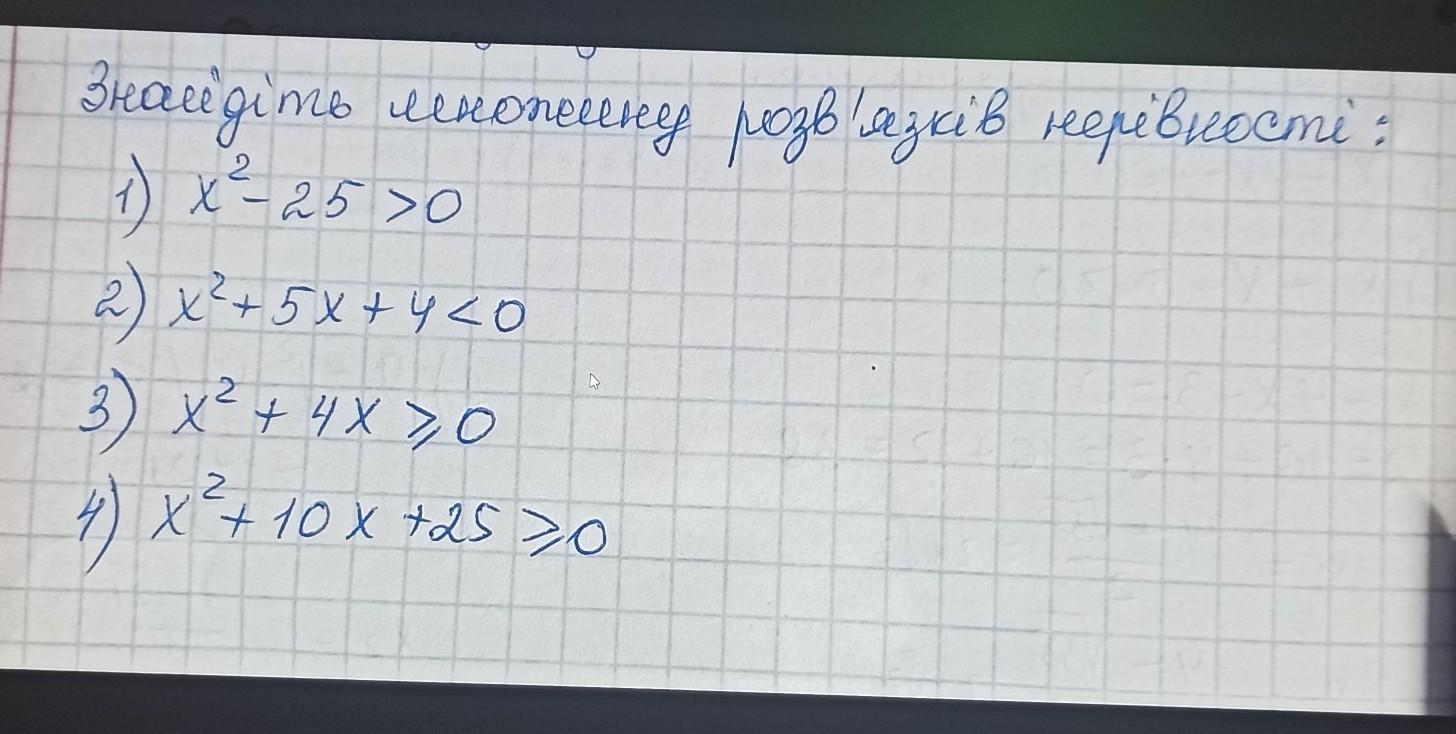 Знайдіть множину розв'язків нерівності:
1) x² - 25 > 0
2) x² + 5x + 4 < 0
3) x² + 4x ⩾ 0
4) x² + 10x + 25 ⩾ 0